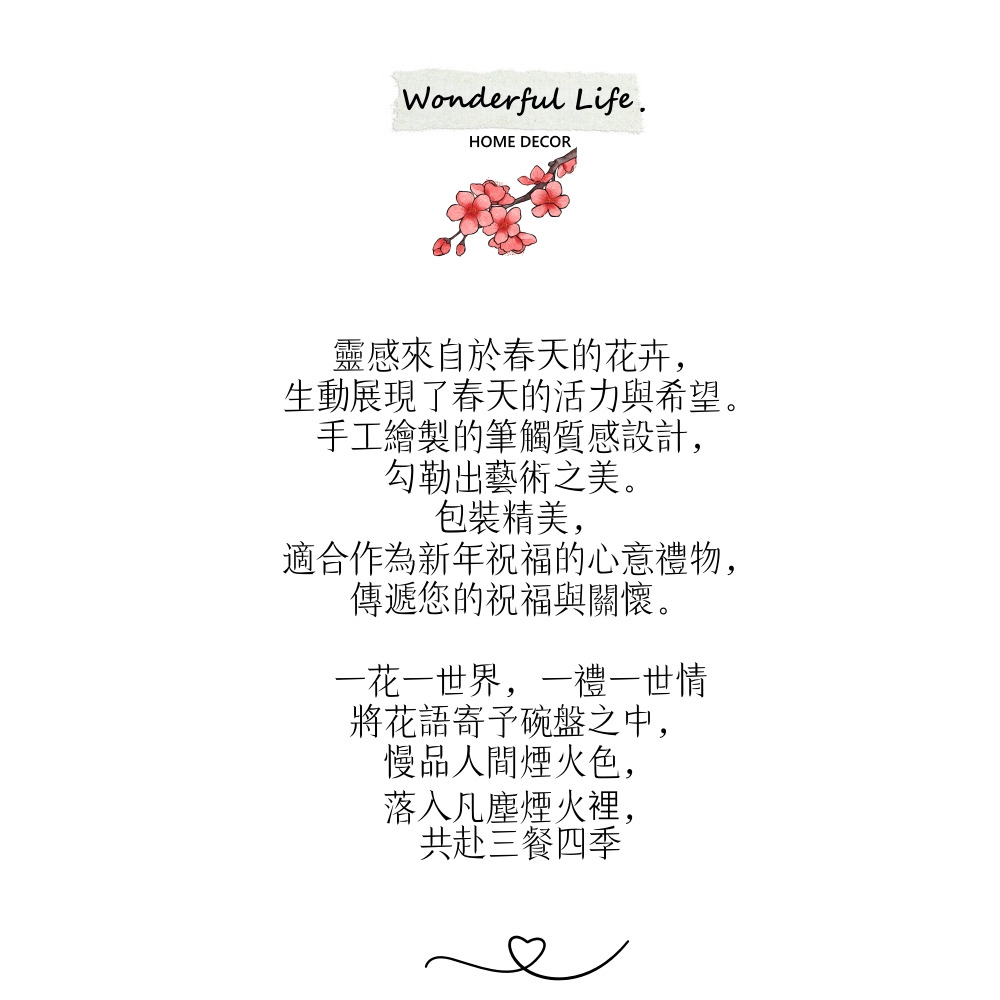 Wonderful Life.
HOME DECOR
靈感來自於春天的花卉，
生動展現了春天的活力與希望。
手工繪製的筆觸質感設計，
勾勒出藝術之美。
包裝精美，
適合作為新年祝福的心意禮物，
傳遞您的祝福與關懷。
一花一世界，一禮一世情
將花語寄予碗盤之中，
慢品人間煙火色，
落入凡塵煙火裡，
共赴三餐四季